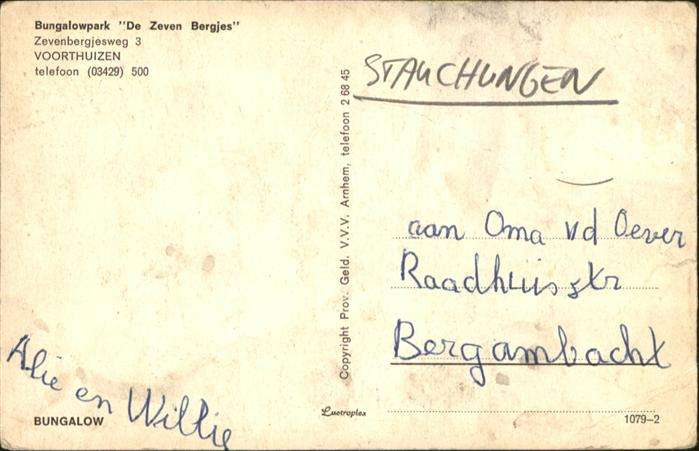 Bungalowpark "De Zeven Bergjes"
Zevenbergjesweg 3
VOORTHUIZEN
telefoon (03429) 500
Alie en Willie
BUNGALOW
Copyright Prov. Geld. V.V.V. Arnhem, telefoon 2 68 45
Luxtroplex
STAUCHUNGEN
aan Oma vd Oever
Raadhuisstr
Bergambacht
1079-2